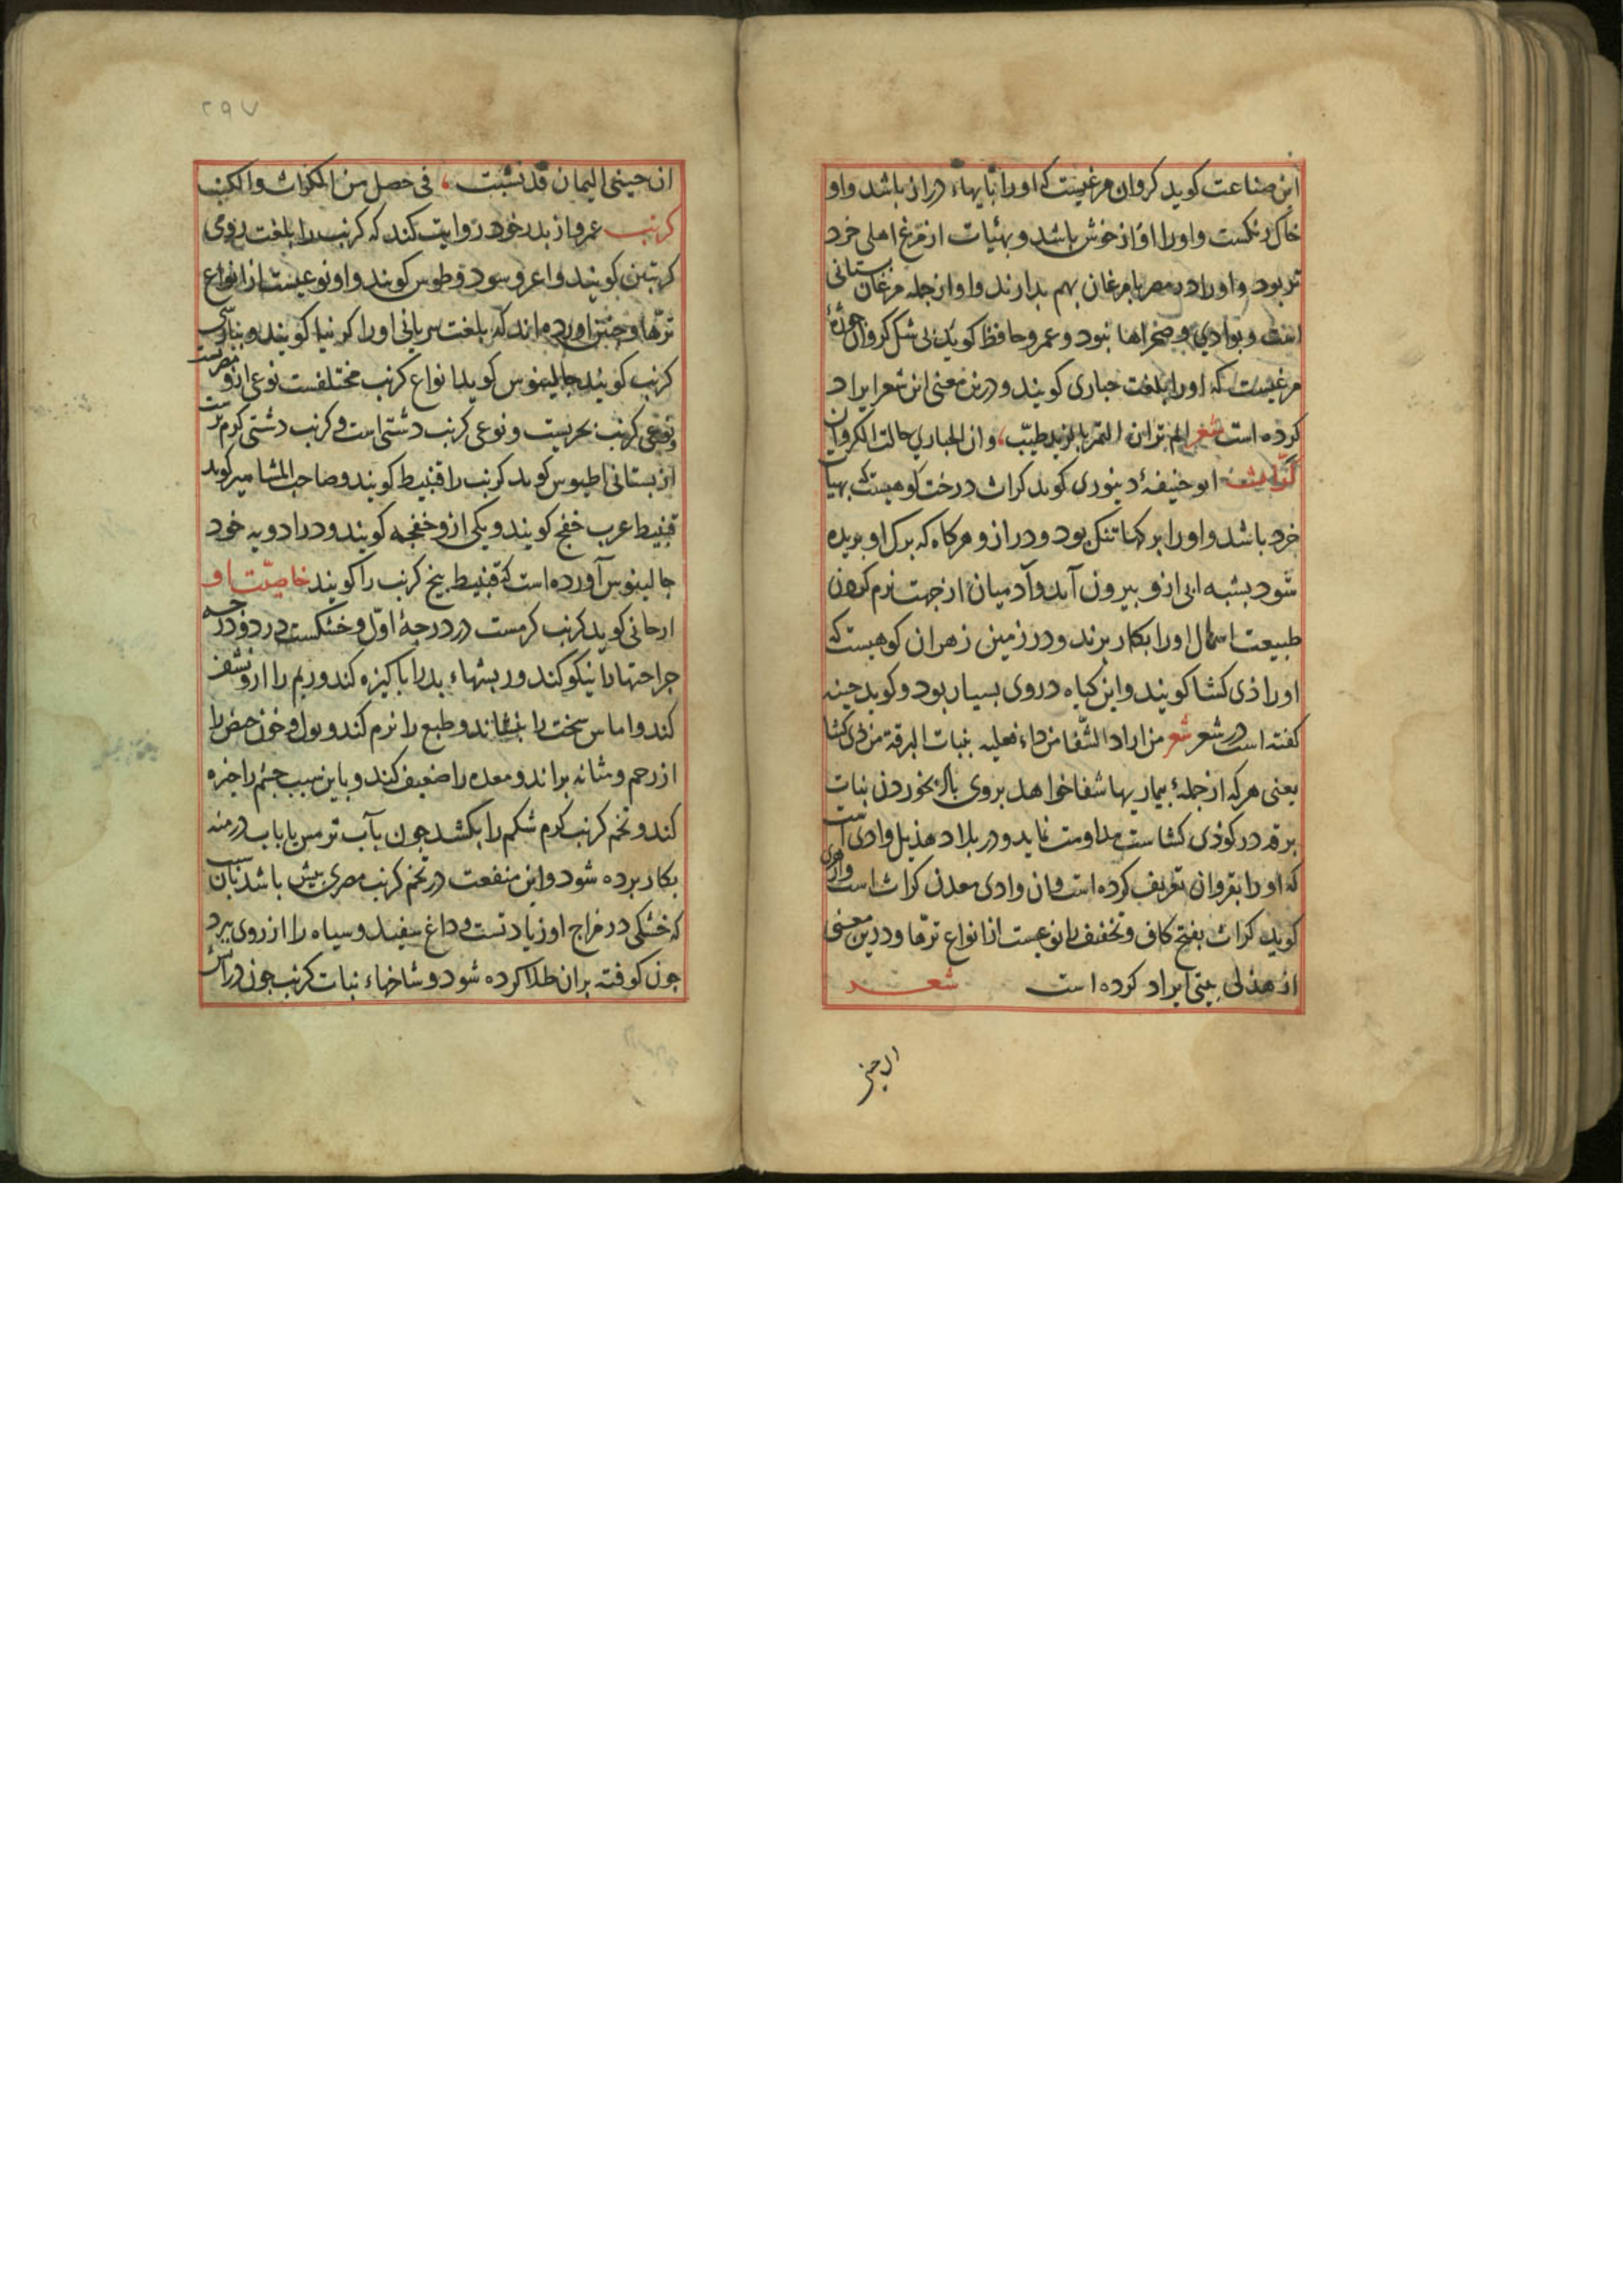 این صناعت کوید کروان مرغیست که او را پایهاء دراز باشد و او
خاک رنکست و او را اواز خوش باشد و بهئیات از مرغ اهلی خرد
تر بود و او را در مصر با مرغان بهم بدارند و او از جمله مرغان بستانی
است و بوادی و صحراها نبود و عمرو حافظ کوید شکل کروان
مرغیست که او را بلغت حباری کویند و درین معنی این شعر ایراد
کرده است شعر الم تر ان التمر بالزبد طیب، وان الحباری خالت الکروان
کراث ابو حنیفهٔ دینوری کوید کراث درخت کوهیست که بهیات
خرد باشد و او را برکها تنک بود و دراز و هرکاه که برک او بریده
شود بشبه ابی ازو بیرون آید و آدمیان از جهت نرم کردن
طبیعت اسهال او را بکار برند و در زمین زهران کوهیست که
او را ذی کشا کویند و این کیاه در وی بسیار بود و کوید جنیه
کفته است در شعر شعر من اراد الشفا من داء فعلیه بنبات البرقة من ذی کشا
یعنی هر که از جملهٔ بیماریها شفا خواهد بروی باد بخوردن نبات
برقه در کوه ذی کشاست مداومت نماید و در بلاد هذیل وادی است
که او را بقروان تعریف کرده است و ان وادی معدن کراث است و ازهری
کوید کراث بفتح کاف و تخفیف را نوعیست از انواع ترها و درین معنی
از هذلی بیتی ایراد کرده است شعر
ان جنی
۲۹۷
ان حینی الیمان قد نشبت، فی حصل من الکراث والکنب
کرنب عمرو از بدر خود روایت کند که کرنب را بلغت رومی
کرنبین کویند و اعروسود و طوس کویند و او نوعیست از انواع
ترها و جنین اورده اند که بلغت سریانی او را کرنبا کویند و بپارسی
کرنب کویند جالینوس کوید انواع کرنب مختلفست نوعی ازو مصریست
و نوعی کرنب بحریست و نوعی کرنب دشتی است و کرنب دشتی کرم ترست
از بستانی اطیوس کوید کرنب را قنبیط کویند و صاحب المشاهیر کوید
قنبیط عرب خفج کویند و یکی ازو خفجه کویند و در ادویه خود
جالینوس آورده است که قنبیط بیخ کرنب را کویند خاصیت او
ارجانی کوید کرنب کرمست در درجهٔ اول و خشکست در دو درجه
جراحتها را نیکو کند و ریشهاء بد را پاکیزه کند و ریم را ازو نشف
کند و اماس سخت را بنشاند و طبع را نرم کند و بول و خون حیض را
از رحم و مثانه براند و معده را ضعیف کند و باین سبب چشم را خیره
کند و تخم کرنب کرم شکم را بکشد چون بآب ترمس یا باب درمنه
بکار برده شود و این منفعت در تخم کرنب مصری بیش باشد بسبب آن
که خشکی در مزاج او زیادتست و داغ سفید و سیاه را از روی ببرد
چون کوفته بران طلا کرده شود و شاخهاء نبات کرنب چون در آتش